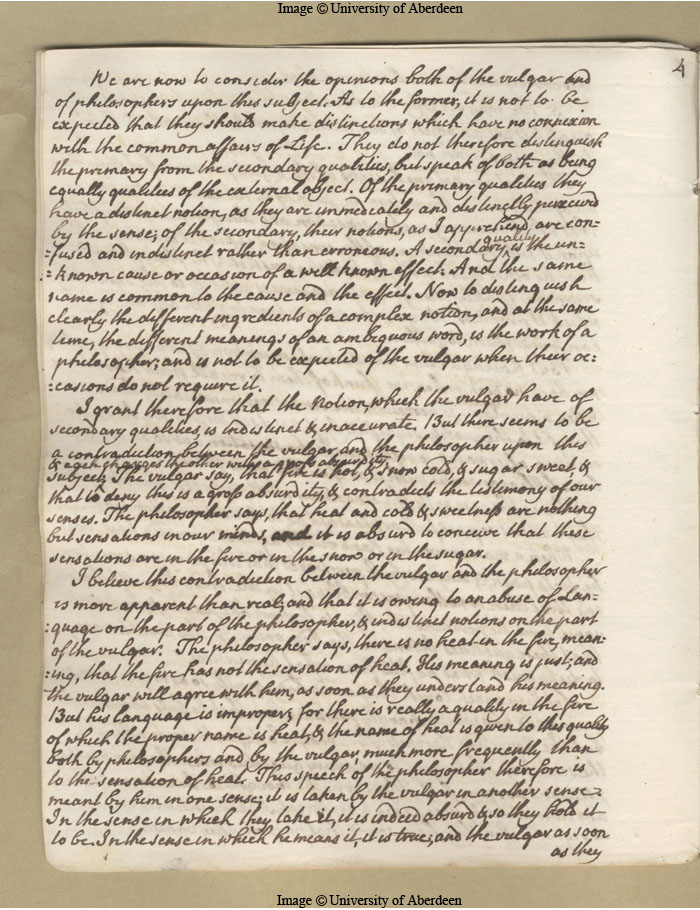 Image © University of Aberdeen
4
We are now to consider the opinions both of the vulgar and
of philosophers upon this subject. As to the former, it is not to be
expected that they should make distinctions which have no connexion
with the common affairs of Life. They do not therefore distinguish
the primary from the secondary qualities, but speak of both as being
equally qualities of the external object. Of the primary qualities they
have a distinct notion, as they are immediately and distinctly perceived
by the sense; of the secondary, their notions, as I apprehend, are con=
quality
:fused and indistinct rather than erroneous. A secondary ^ is the un=
:known cause or occasion of a well known effect. And the same
name is common to the cause and the effect. Now to distinguish
clearly the different ingredients of a complex notion, and at the same
time, the different meanings of an ambiguous word, is the work of a
philosopher; and is not to be expected of the vulgar when their oc=
:casions do not require it.
I grant therefore that the Notion, which the vulgar have of
secondary qualities, is indistinct & inaccurate. But there seems to be
a contradiction between the vulgar and the philosopher upon this
& each charges the other with a gross absurdity
subject. The vulgar say, that fire is hot, & snow cold, & sugar sweet, &
that to deny this is a gross absurdity, & contradicts the testimony of our
senses. The philosopher says, that heat and cold & sweetness are nothing
but sensations in our minds, and it is absurd to conceive that these
sensations are in the fire or in the snow or in the sugar.
I believe this contradiction between the vulgar and the philosopher
is more apparent than real; and that it is owing to an abuse of Lan=
:guage on the part of the philosopher, & indistinct notions on the part
of the vulgar. The philosopher says, there is no heat in the fire, mean=
:ing, that the fire has not the sensation of heat. His meaning is just; and
the vulgar will agree with him, as soon as they understand his meaning.
But his language is improper; for there is really a quality in the fire
of which the proper name is heat, & the name of heat is given to this quality
both by philosophers and by the vulgar, much more frequently than
to the sensation of heat. This speech of the philosopher therefore is
meant by him in one sense; it is taken by the vulgar in another sense.
In the sense in which they take it, it is indeed absurd & so they hold it
to be. In the sense in which he means it, it is true; and the vulgar as soon
as they
Image © University of Aberdeen